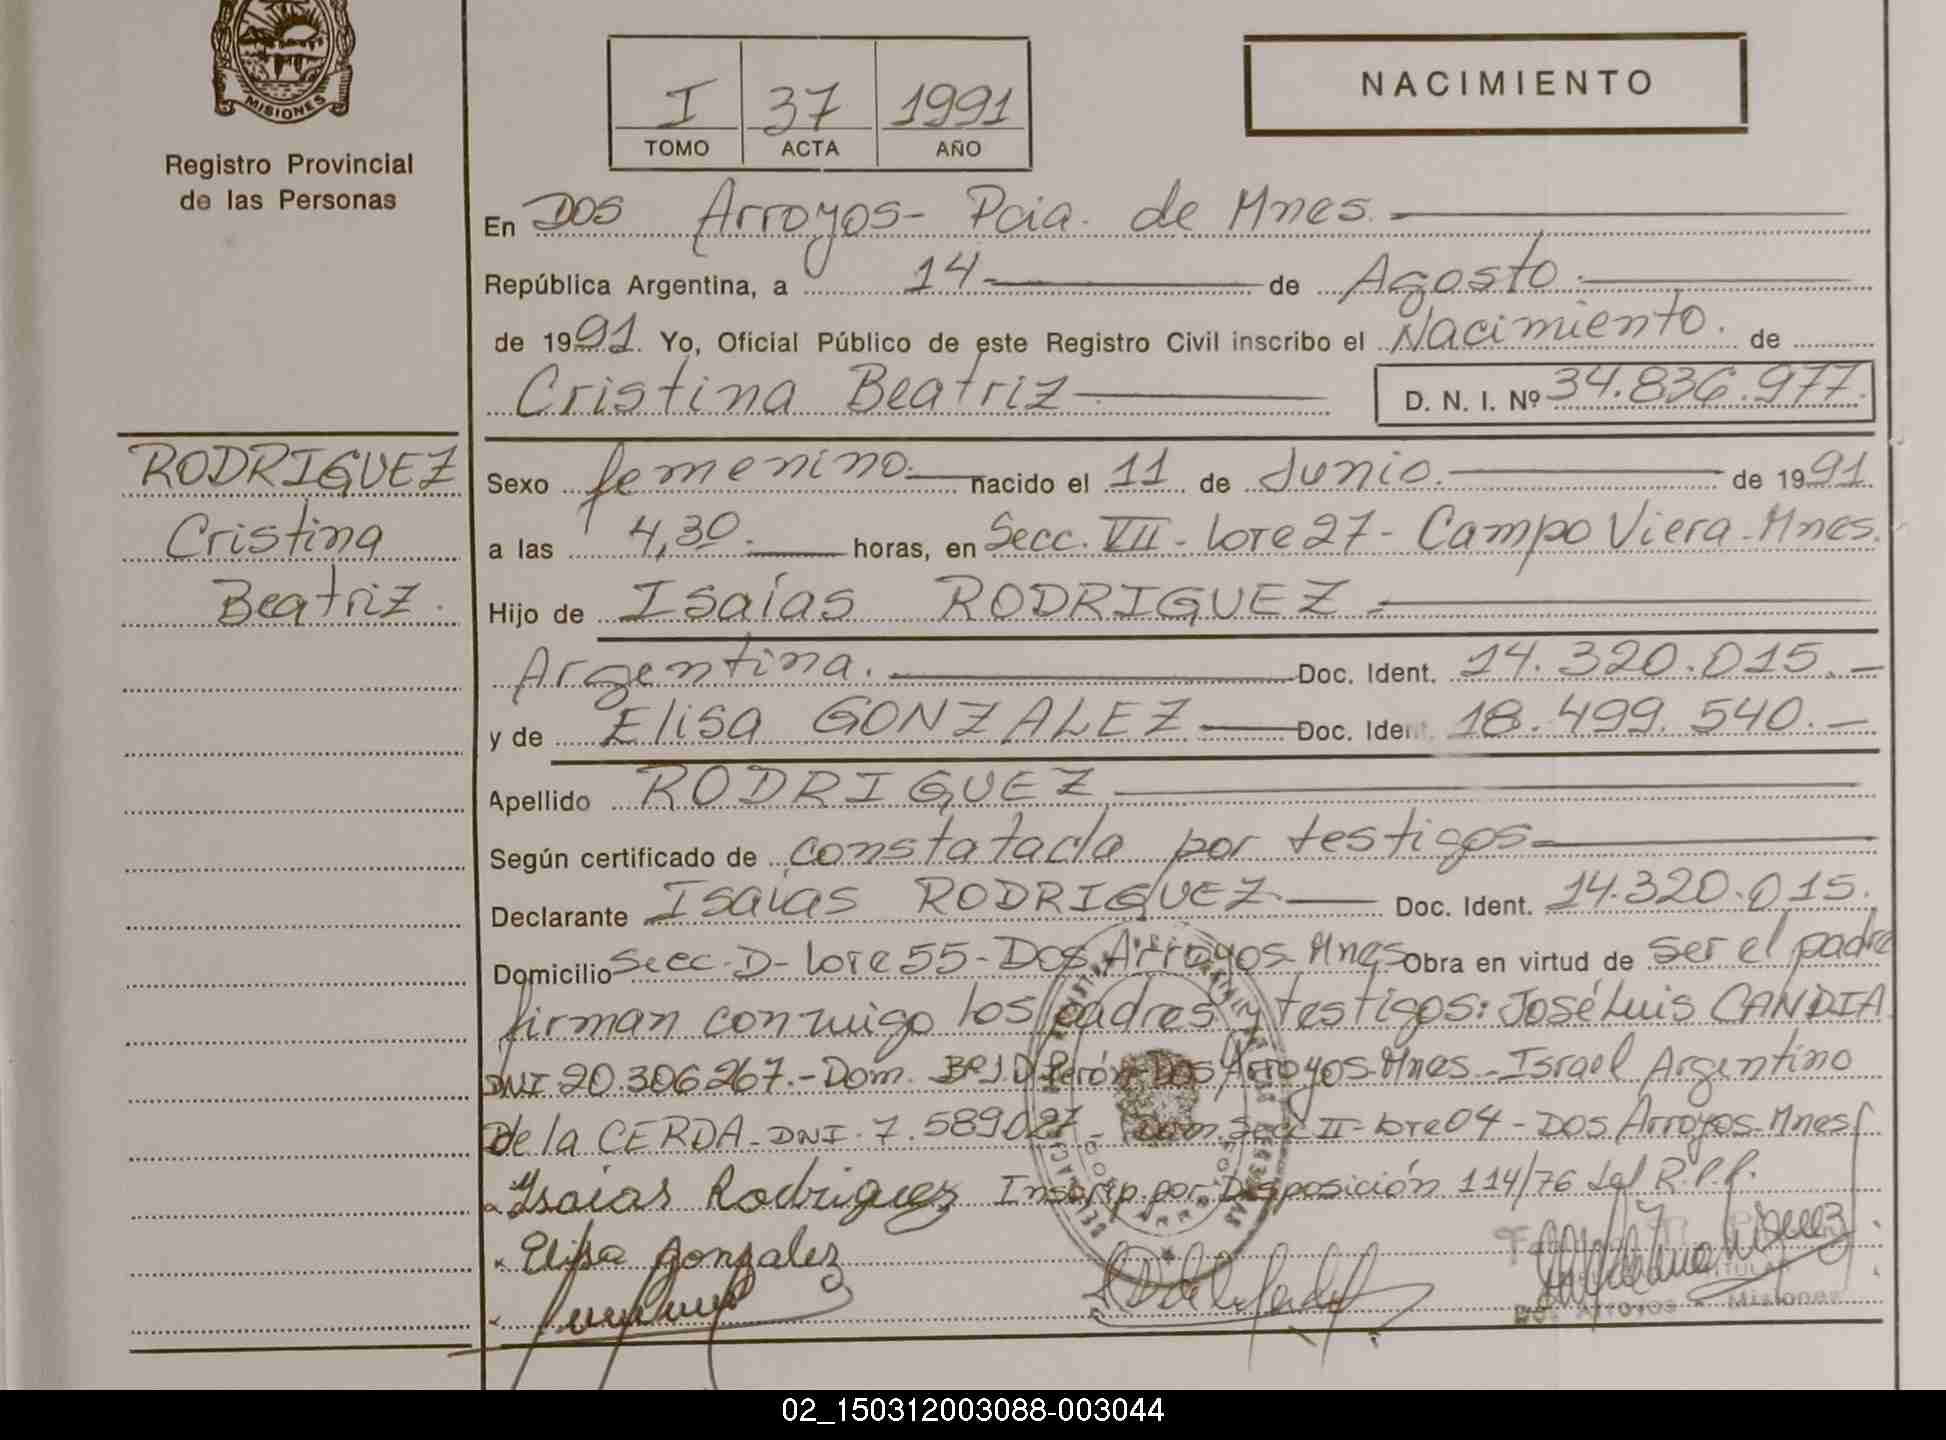 MISIONES
Registro Provincial
de las Personas
I 37 1991
TOMO ACTA AÑO
NACIMIENTO
En Dos Arroyos- Pcia. de Mnes.
República Argentina, a 14 de Agosto.
de 1991. Yo, Oficial Público de este Registro Civil inscribo el Nacimiento. de
Cristina Beatriz D. N. I. Nº 34.836.977.
RODRIGUEZ
Cristina
Beatriz.
Sexo femenino. nacido el 11 de Junio. de 1991.
a las 4,30. horas, en Secc. VII- Lote 27- Campo Viera-Mnes.
Hijo de Isaías RODRIGUEZ.
Argentina. Doc. Ident. 14.320.015.-
y de Elisa GONZALEZ Doc. Ident. 18.499.540.-
Apellido RODRIGUEZ
Según certificado de constatada por testigos
Declarante Isaías RODRIGUEZ Doc. Ident. 14.320.015.
Domicilio Secc-D-Lote 55-Dos Arroyos-Mnes Obra en virtud de ser el padre
firman conmigo los padres y testigos: José Luis CANDIA
DNI 20.306.267.-Dom. Bº J.D Perón-Dos Arroyos-Mnes.-Israel Argentino
De la CERDA-DNI. 7.589.027- Dom. Secc II-Lote 04-Dos Arroyos-Mnes
Isaias Rodriguez Inscrip. por Disposición 114/76 del R.P.P.
Elisa gonzalez
Dos Arroyos - Misiones
02_150312003088-003044